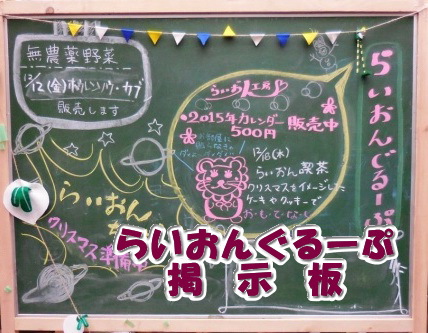 無農薬野菜
12/12(金)ホウレンソウ・カブ
販売します
らいおんぐるーぷ
らいおん工房
●2015年カレンダー販売中
500円
12/18(木)
らいおん喫茶
クリスマスをイメージした
ケーキやクッキーで
お・も・て・な・し
らいおん
クリスマス準備中
らいおんぐるーぷ
掲示板